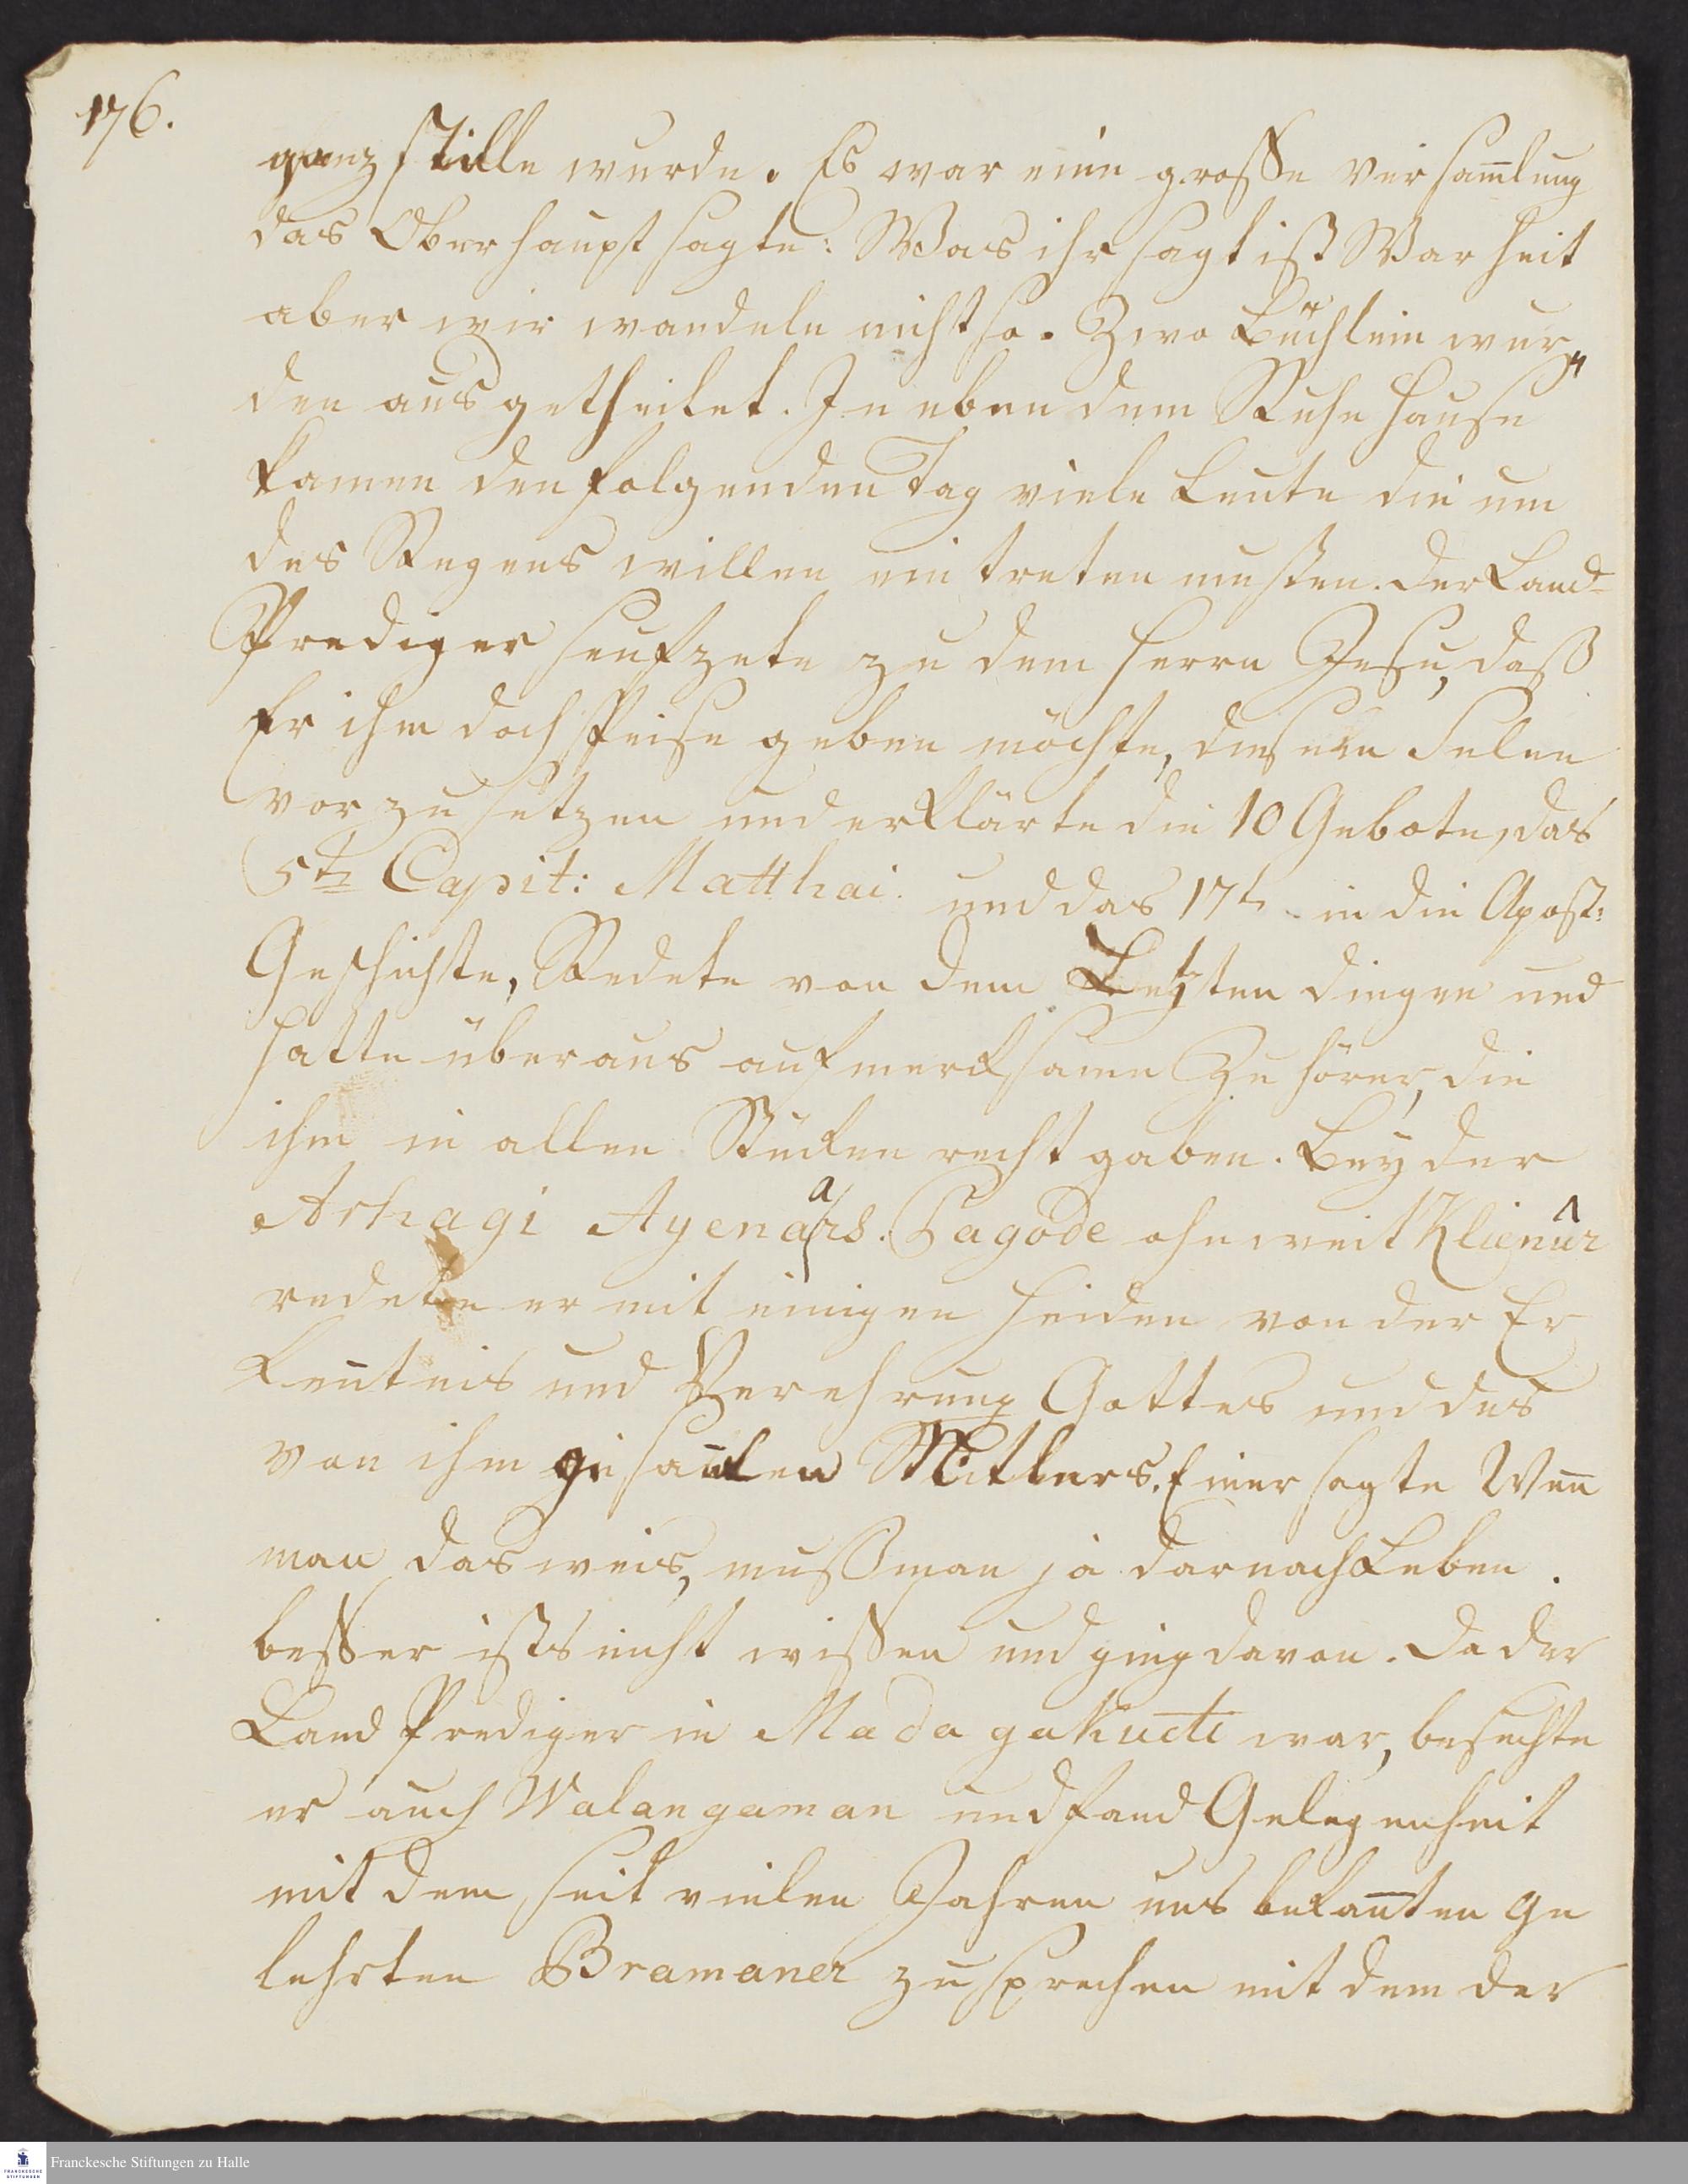 176.
ganz stille wurde. Es war eine große versam̄lung
das Oberhaupt sagte: Was ihr sagt ist Warheit
aber wir wandeln nicht so. Zwo Büchlein wur„
den ausgetheilet. In eben dem Ruhe Hause
kamen den folgenden Tag viele Leute die um
des Regens willen ein treten musten. der Land-
Prediger seufzete zu dem Herrn Jesu, daß
Er ihm doch Speise geben möchte, diesen Selen
vor zu setzen und erklärte die 10 Gebote, das
5te Capit: Matthai und das 17te in die Apost:
Geschichte, Redete von dem Letzten dingen und
hatte überaus aufmerksame Zuhörer, die
ihm in allen Stücken recht gaben. Bey der
Arhagi Ayenars. Pagode ohnweit Klienûr
redete er mit einigen Heiden von der Er
kentnis und Verehrung Gottes und des
von ihm gesan̄ten Mitlers. Einer sagte Wen̄
man das weis, muß man ja darnach Leben.
besser ists nicht wissen und ging davon. Da der
Land Prediger in Madagakudi war, besuchte
er auch Walangaman und fand Gelegenheit
mit dem seit vielen Jahren uns bekan̄ten ge
lehrten Bramaner zu sprechen mit dem der
Franckesche Stiftungen zu Halle
FRANCKESCHE
STIFTUNGEN